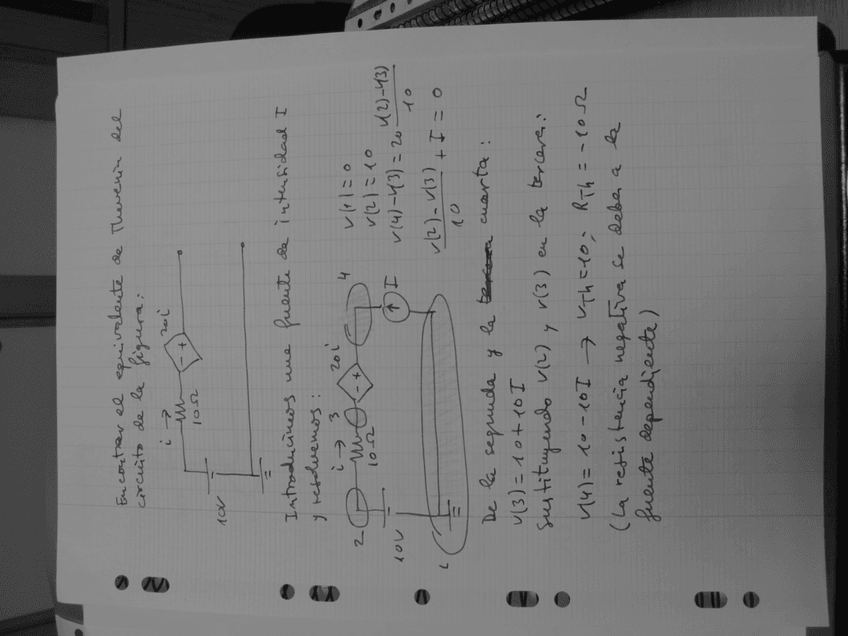 Encontrar el equivalente de Thevenin del
circuito de la figura:
i →
10Ω
20i
- +
10V
Introducimos una fuente de intensidad I
y resolvemos:
2
i →
3
10Ω
20i
- +
4
I
10V
1
v(1) = 0
v(2) = 10
v(4) - v(3) = 20 (v(2) - v(3))/10
(v(2) - v(3))/10 + I = 0
De la segunda y la cuarta:
v(3) = 10 + 10 I
Sustituyendo v(2) y v(3) en la tercera:
v(4) = 10 - 10 I → VTh = 10; RTh = -10 Ω
(La resistencia negativa se debe a la
fuente dependiente)